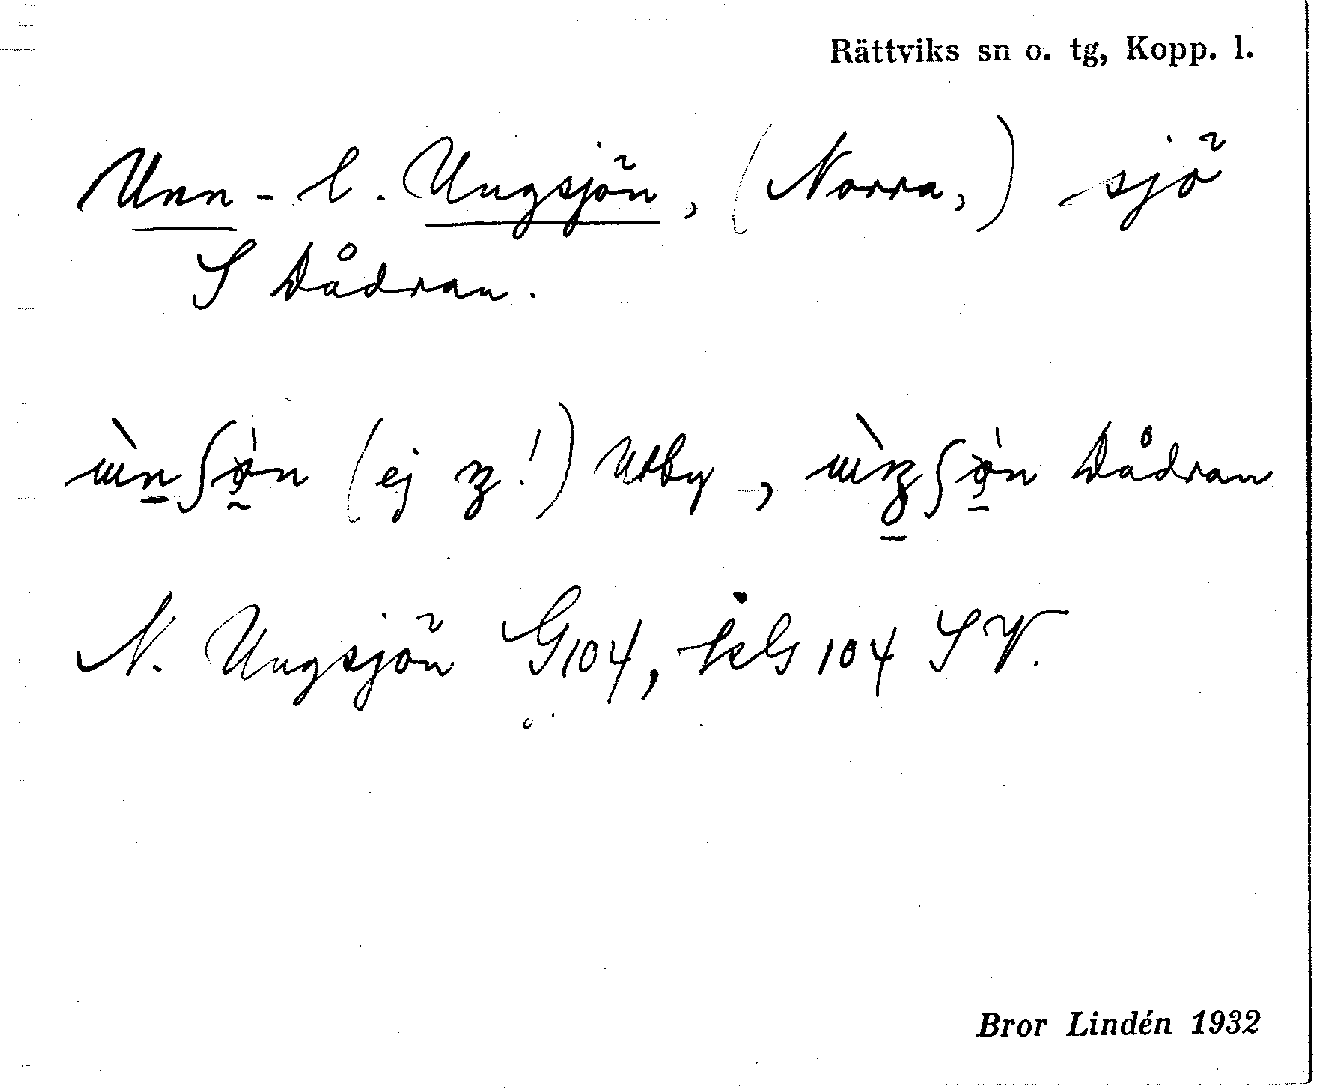 Rättviks sn o. tg, Kopp. l.
Unn- l. Ungsjön, (Norra,) sjö
S Dådran.
(ej ŋ!) Utby, Dådran
N. Ungsjön G104, kG 104 SV.
Bror Lindén 1932